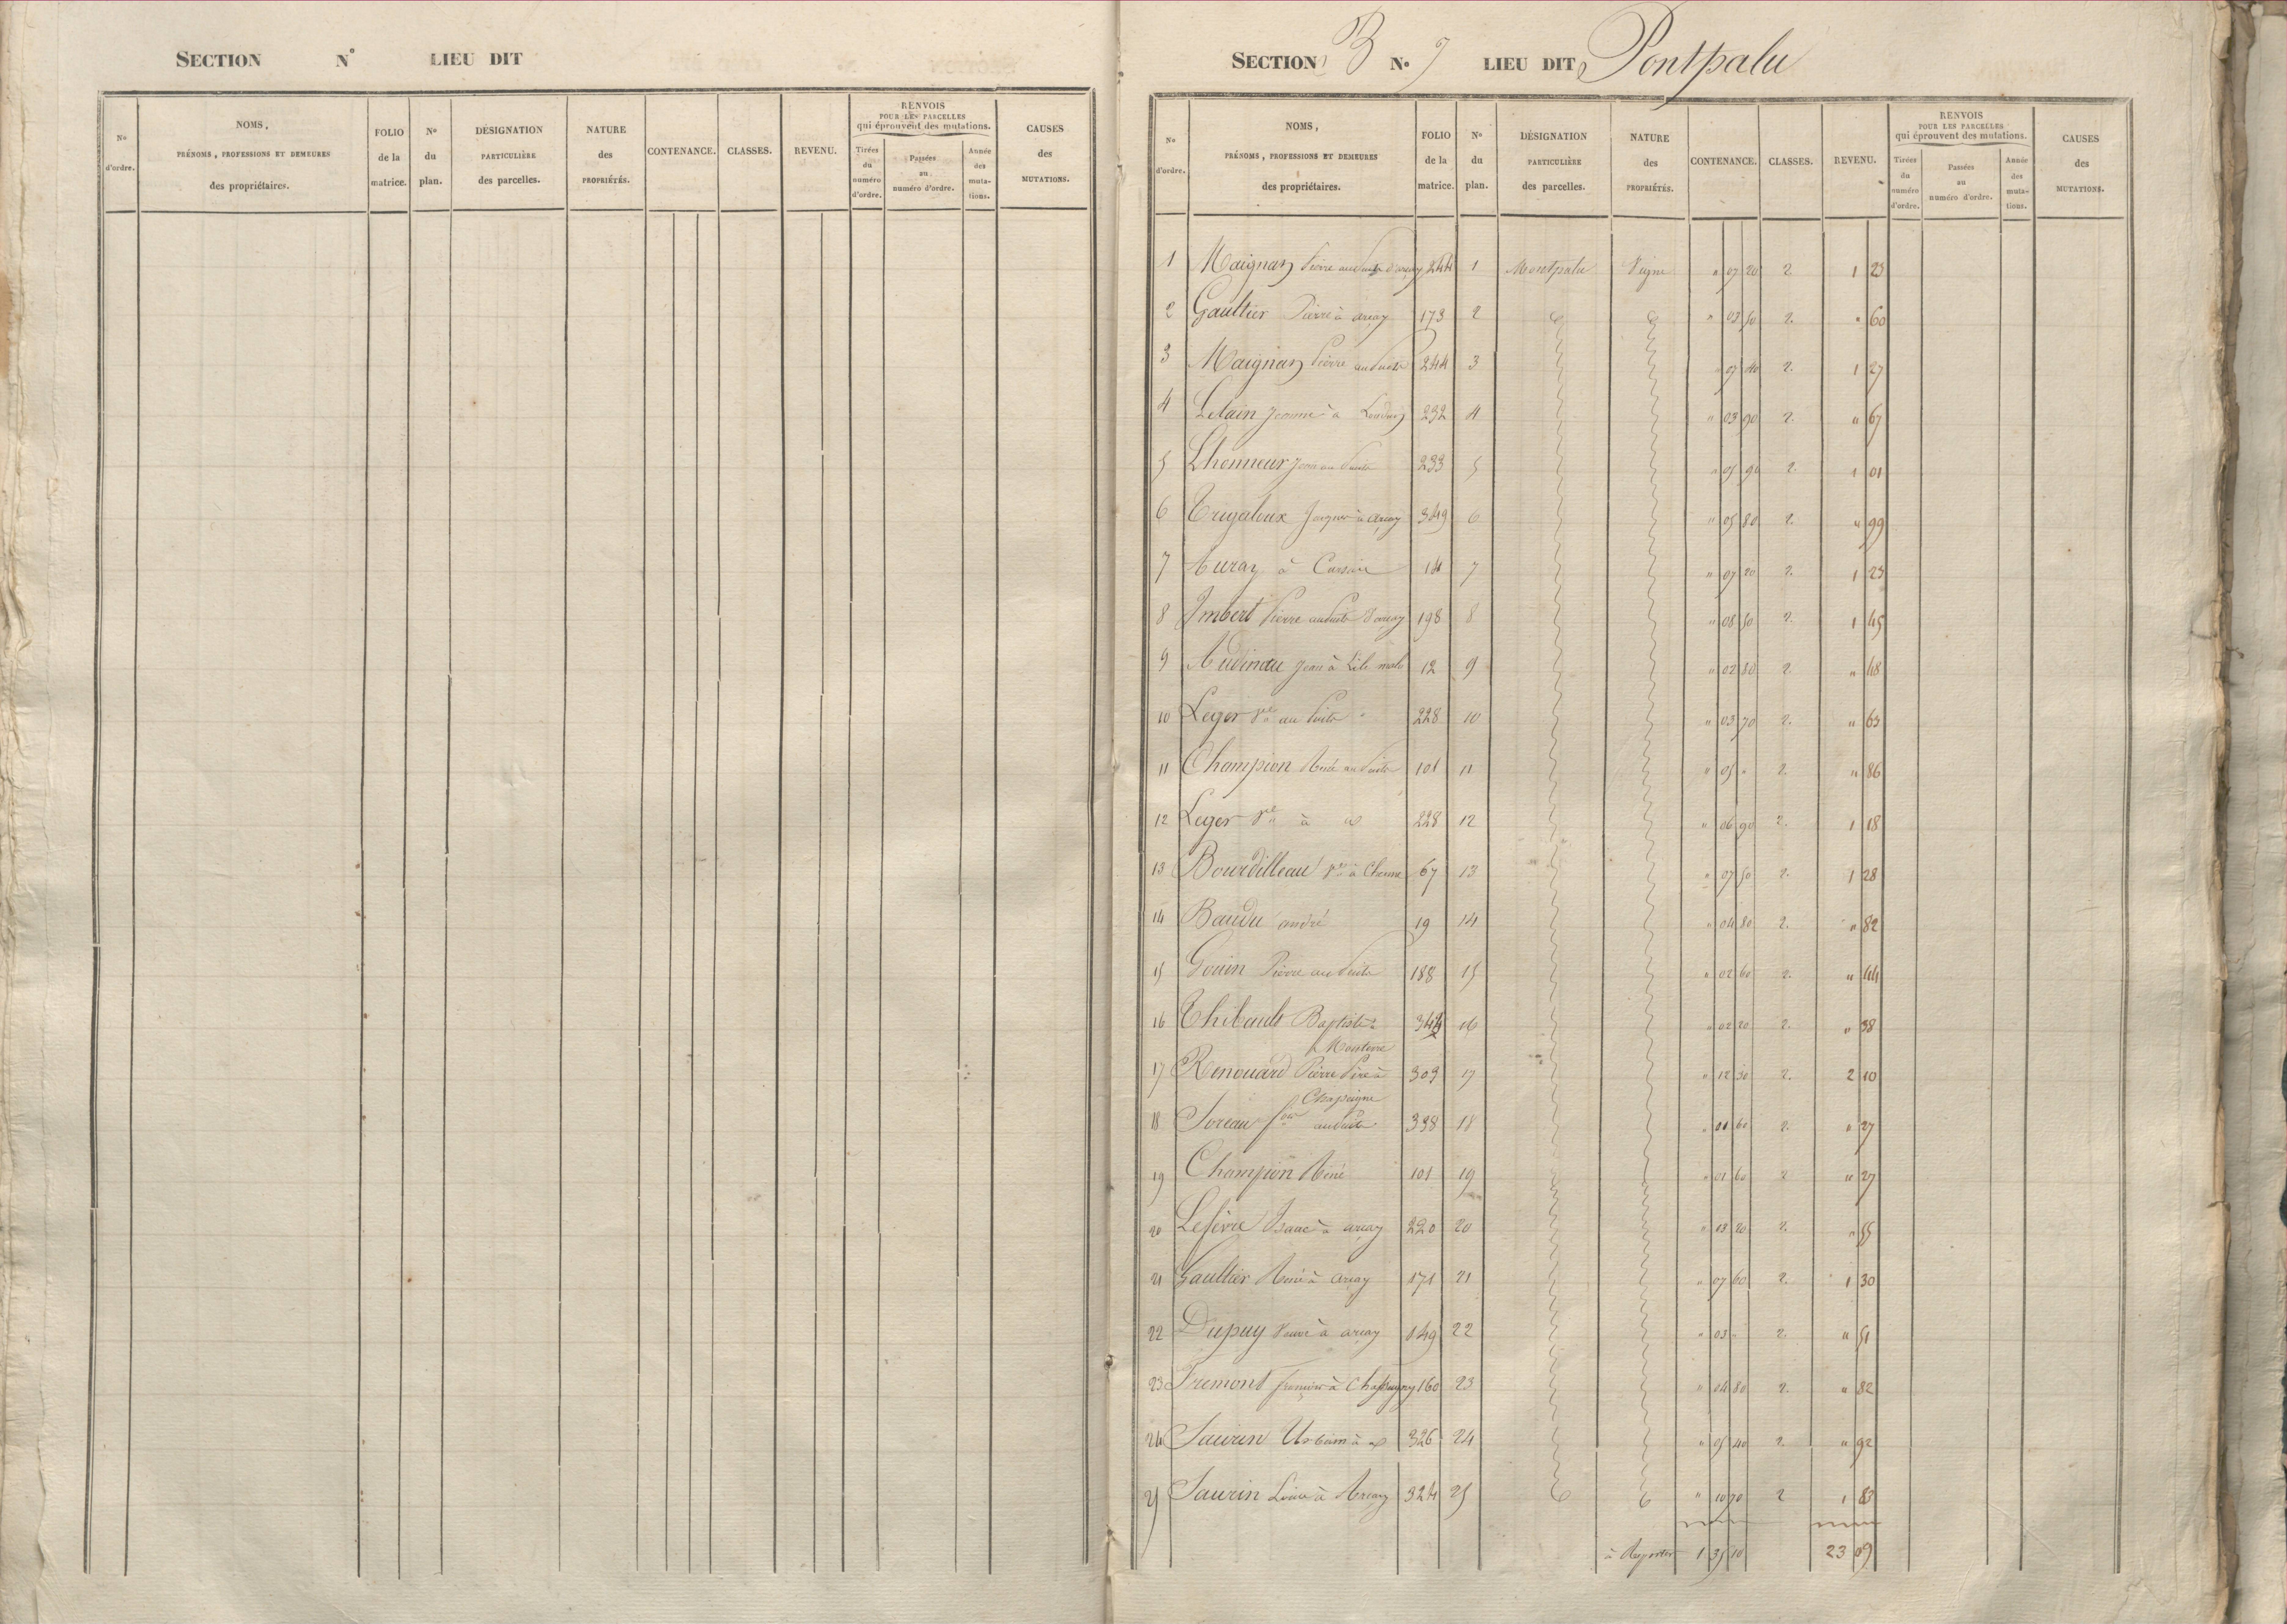 SECTION N° LIEU DIT
N° d'ordre. NOMS, PRÉNOMS, PROFESSIONS ET DEMEURES des propriétaires. FOLIO de la matrice. N° du plan. DÉSIGNATION PARTICULIÈRE des parcelles. NATURE des PROPRIÉTÉS. CONTENANCE. CLASSES. REVENU. RENVOIS POUR LES PARCELLES qui éprouvent des mutations. Tirées du numéro d'ordre. Passées au numéro d'ordre. Année des mutations. CAUSES des MUTATIONS.
SECTION B N° LIEU DIT Pontpalu
N° d'ordre. NOMS, PRÉNOMS, PROFESSIONS ET DEMEURES des propriétaires. FOLIO de la matrice. N° du plan. DÉSIGNATION PARTICULIÈRE des parcelles. NATURE des PROPRIÉTÉS. CONTENANCE. CLASSES. REVENU. RENVOIS POUR LES PARCELLES qui éprouvent des mutations. Tirées du numéro d'ordre. Passées au numéro d'ordre. Année des mutations. CAUSES des MUTATIONS.
1 Maignan Pierre au Puits d'arçay 244 1 Montpalu Vigne " 07 20 2. 1 23
2 Gaultier Pierre à arçay 173 2 " 03 50 2. " 60
3 Maignan Pierre au Puits 244 3 " 07 40 2. 1 27
4 Lelain Jeanne à Loudun 232 4 " 03 90 2. " 67
5 Lhonneur Jean au Puits 233 5 " 05 90 2. 1 01
6 Trigaloux Jacques à arçay 349 6 " 05 80 2. " 99
7 Auray à 14 7 " 07 20 2. 1 23
8 Imbert Pierre au Puits d'arçay 198 8 " 08 50 2. 1 45
9 Audinau Jean à 12 9 " 02 80 2. " 48
10 Leger Ve au Puits 228 10 " 03 70 2. " 63
11 Champion René au Puits 101 11 " 05 " 2 " 86
12 Leger Ve à 228 12 " 06 90 2. 1 18
13 Bourdilleau Ve à 67 13 " 07 50 2. 1 28
14 Baudu andré 19 14 " 04 80 2. " 82
15 Gouin Pierre au Puits 188 15 " 02 60 2. " 44
16 Thibault Baptiste à Monterre 16 " 02 20 2. " 38
17 Renouard Pierre Père à Chapaigne 303 17 " 12 30 2. 2 10
18 Soreau au Puits 338 18 " 01 60 2. " 27
19 Champion René 101 19 " 01 60 2 " 27
20 Lefèvre Isaac à arçay 220 20 " 20 2. " 55
21 Gaultier René à arçay 171 21 " 07 60 2. 1 30
22 Dupuy Veuve à arçay 149 22 " 03 " 2. " 51
23 Fremont François à 160 23 " 04 80 2. " 82
24 Saurin Urbain à 326 24 " 05 40 2. " 92
25 Saurin à Arçay 324 25 " 10 70 2 1 83
à Reporter 1 35 10 23 09